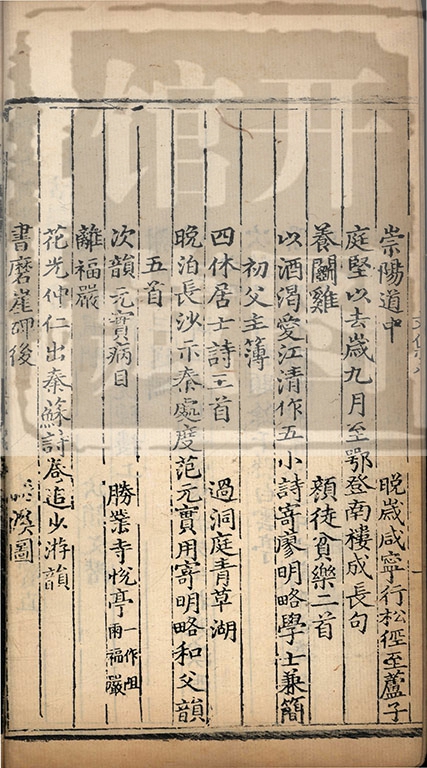 崇陽道中　晚歲咸寧行松徑至蘆子
庭堅以去歲九月至鄂登南樓成長句
養鬬雞　顔徒貧樂二首
以酒渴愛江清作五小詩寄廖明略學士兼簡
初父主簿
四休居士詩三首　過洞庭青草湖
晚泊長沙示秦處度范元實用寄明略和父韻
五首
次韻元實病目　勝業寺悅亭一作阻雨福嚴
離福嚴
花光仲仁出秦蘇詩卷追少游韻
書磨崖碑後　溪圖